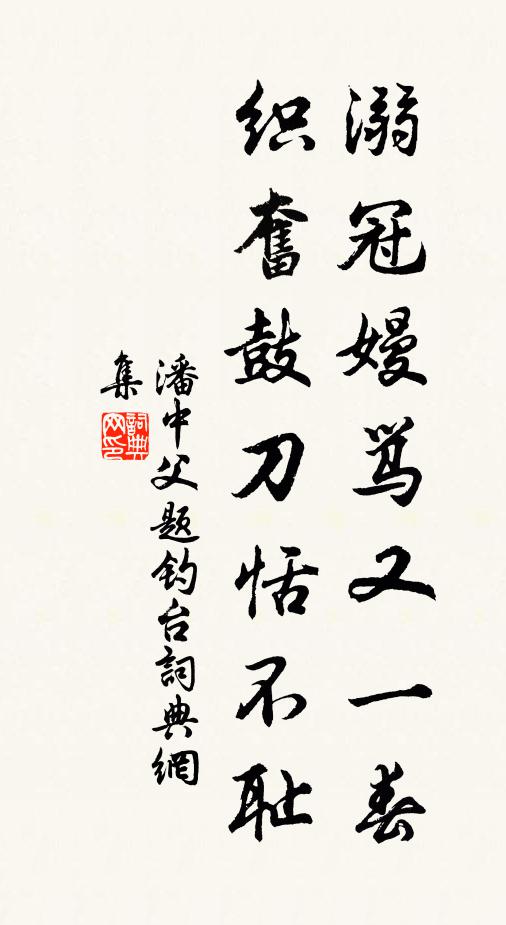 溺冠嫚骂又一秦
织奋鼓刀恬不耻
潘中父题钓台詞典網
集
詞典
网印